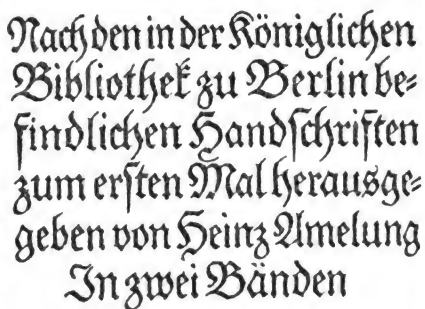 Nach den in der Königlichen
Bibliothek zu Berlin be⸗
findlichen Handſchriften
zum erſten Mal herausge⸗
geben von Heinz Amelung
In zwei Bänden